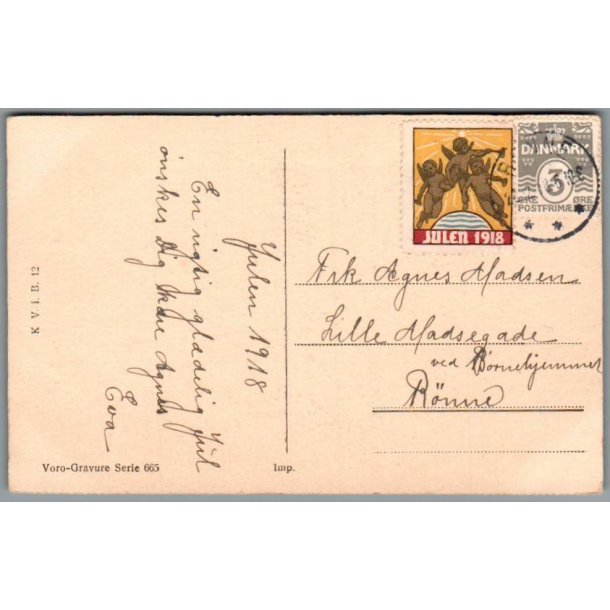 Julen 1918
En rigtig glædelig Jul
ønskes Dig kære Agnes
Eva
K V I B. 12
Voro-Gravure Serie 665
Imp.
JULEN 1918
DANMARK
3
ØRE
POSTFRIMÆRKE
Frk Agnes Madsen
Lille Madsegade
ved Børnehjemmet
Rønne